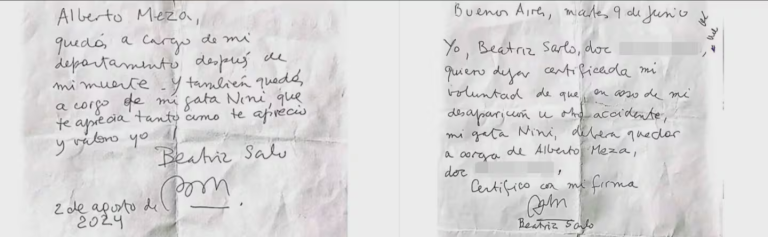 Alberto Meza,
quedás a cargo de mi
departamento después de
mi muerte. Y también quedás
a cargo de mi gata Nini, que
te aprecia tanto como te aprecio
y valoro yo
Beatriz Sarlo
2 de agosto de
2024
Buenos Aires, martes 9 de junio
Yo, Beatriz Sarlo, doc
quiero dejar certificada mi
voluntad de que, en caso de mi
desaparición u otro accidente,
mi gata Nini, deberá quedar
a cargo de Alberto Meza,
doc
Certifico con mi firma
Beatriz Sarlo